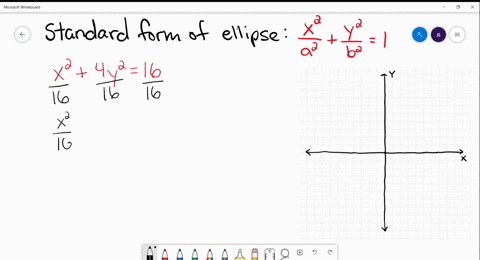 Microsoft Whiteboard
Standard form of ellipse: x²/a² + y²/b² = 1
x²/16 + 4y²/16 = 16/16
x²/16
Y
X